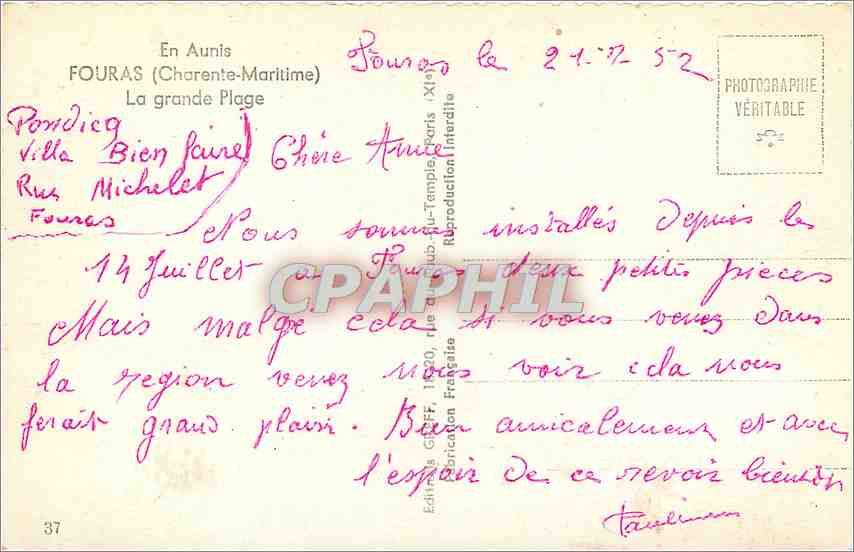 En Aunis
FOURAS (Charente-Maritime)
La grande Plage
Fouras le 21-7 52
PHOTOGRAPHIE
VÉRITABLE
Villa Bien faire
Rue Michelet
Fouras
Chère Annie
Nous sommes installés depuis le
14 Juillet a Fouras deux petites pieces
Mais malgé cela si vous venez dans
la region venez nous voir cela nous
ferait grand plaisir. Bien amicalement et avec
l'espoir de ce revoir bientôt
37
Editions GREFF, rue du Faub.-du-Temple, Paris (XIe)
Fabrication Française Reproduction Interdite
CPAPHIL